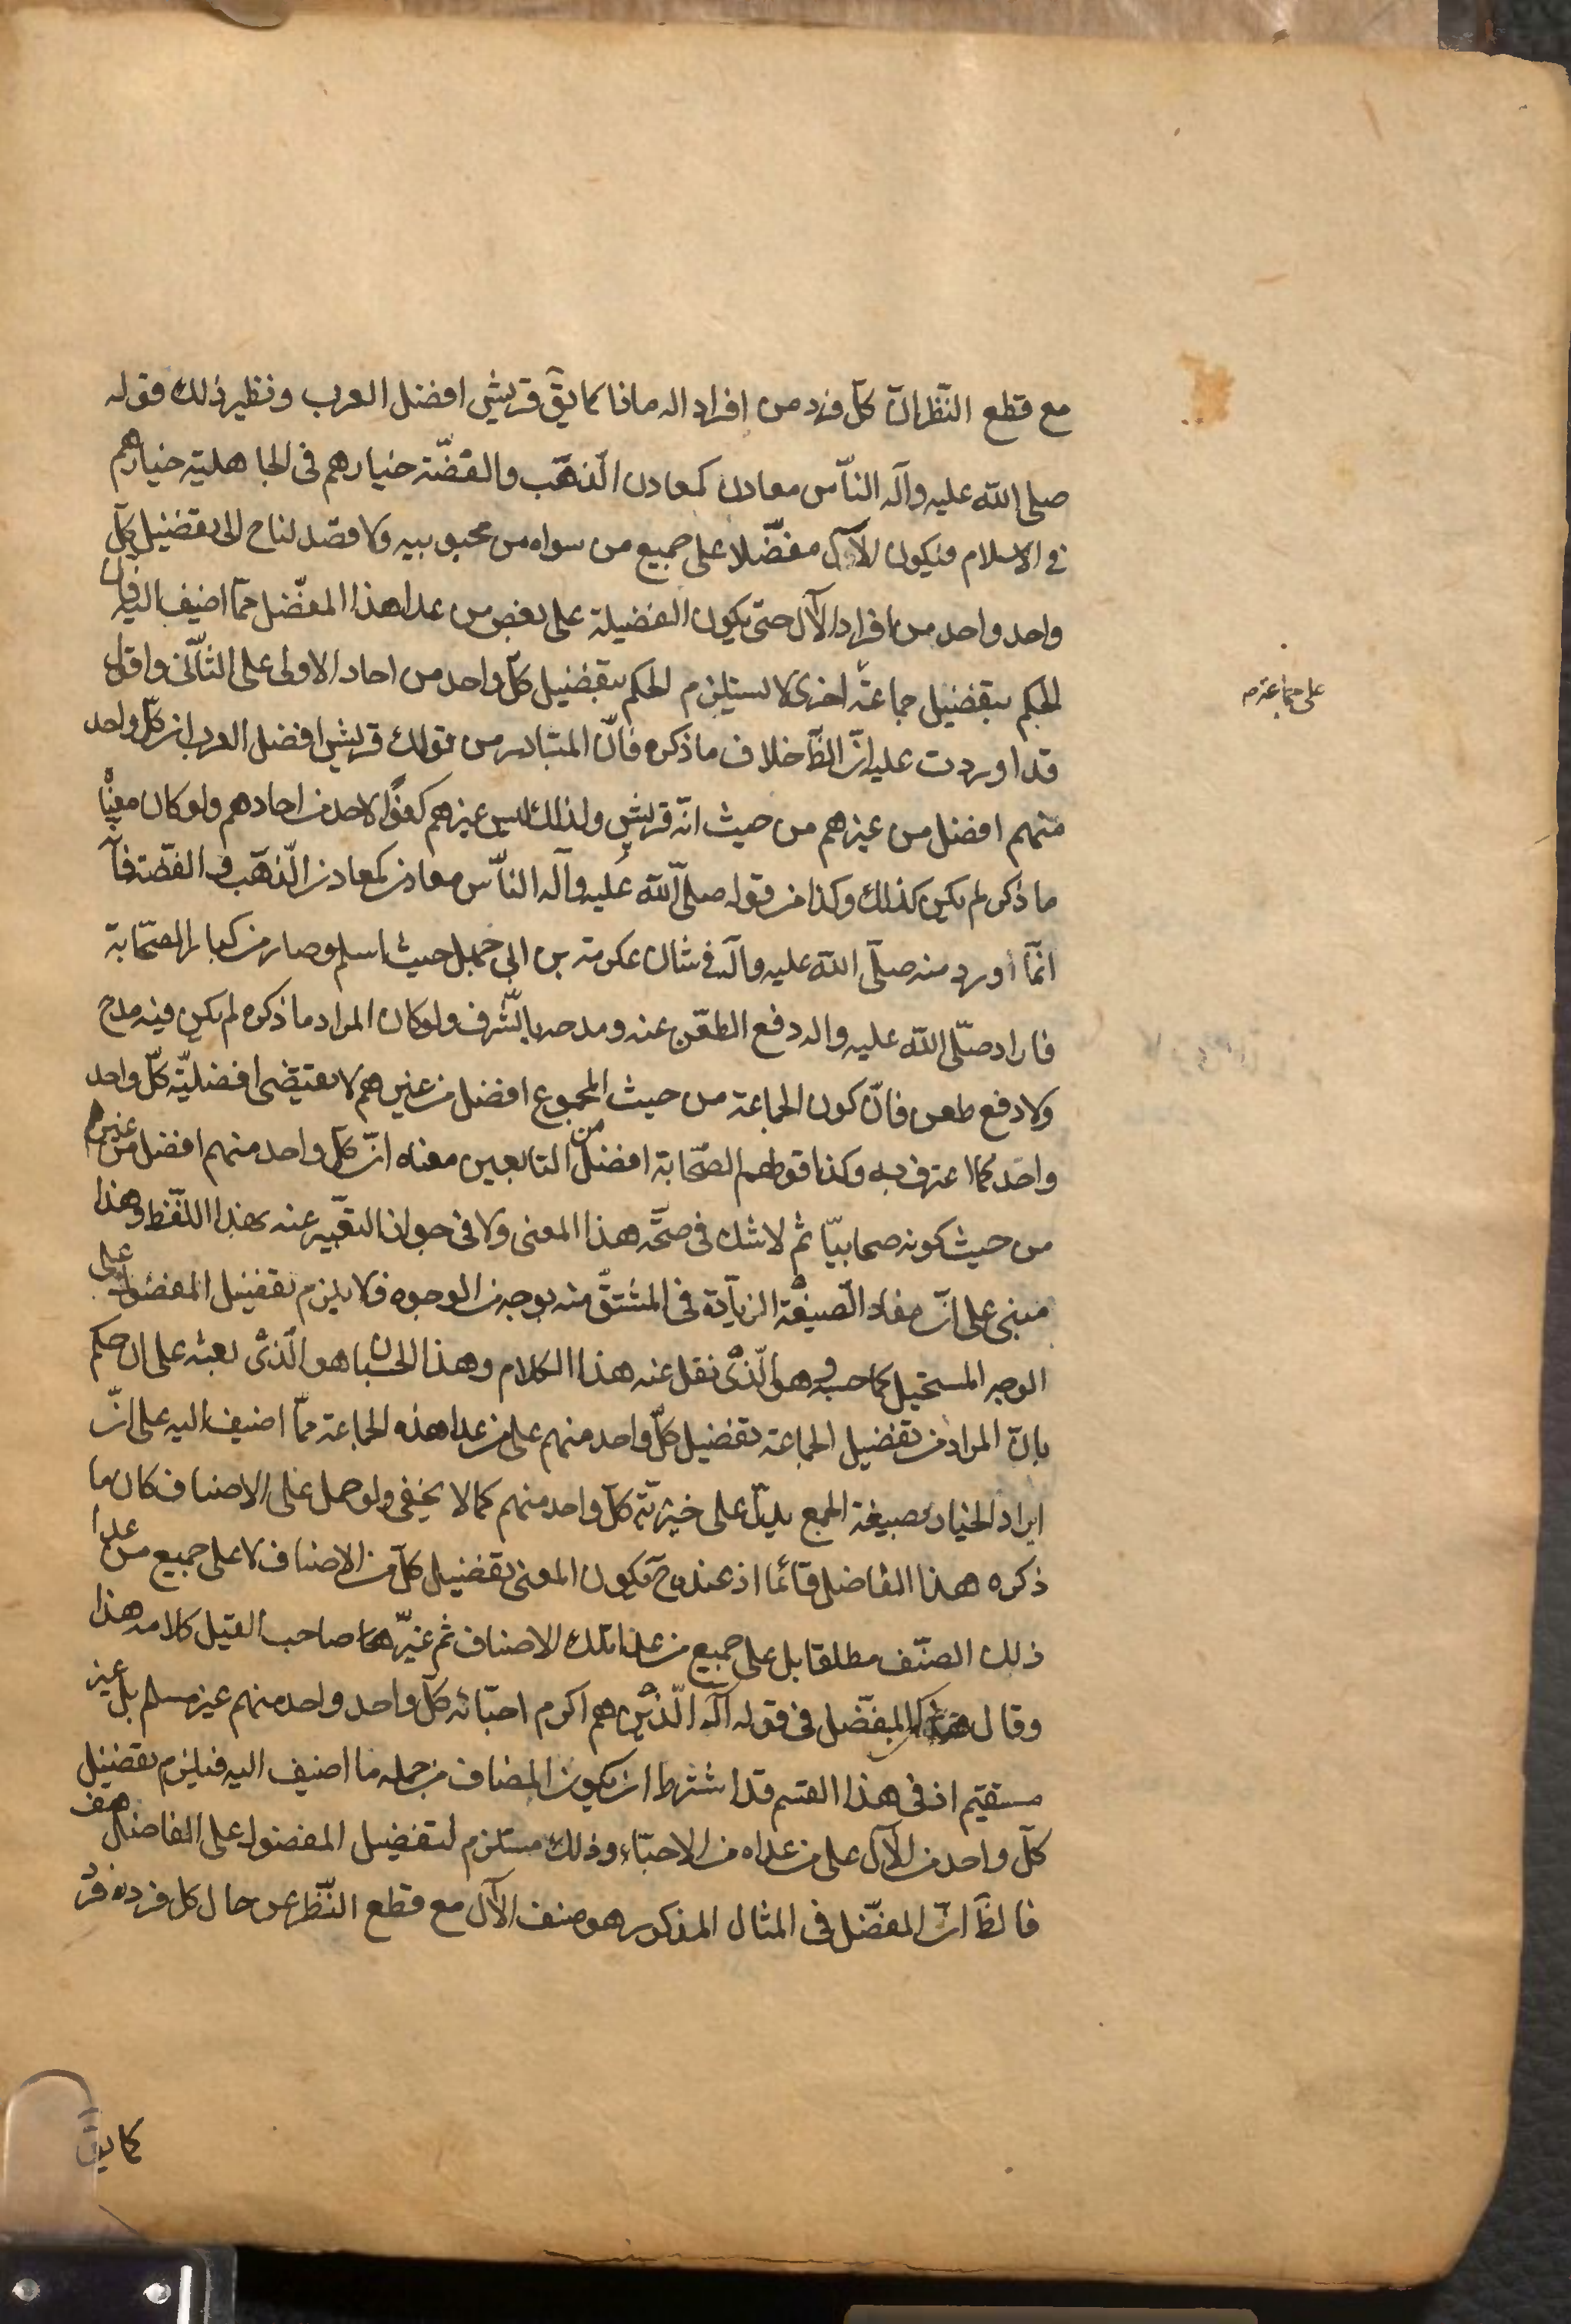 مع قطع النّظر انّ كلّ فرد من افراد اله ماذا كما يقّ قريش افضل العرب ونظير ذلك قوله
صلى الله عليه وآله النّاس معادن كمعادن الذّهب والفضّة خيارهم فى الجاهلية خيارهم
فى الاسلام فيكون الآل مفضّلا على جميع من سواه من محبوبيه ولا قصد لنا ح الى تفضيل كلّ
واحد واحد من افراد الآل حتى يكون الفضيلة على بعض من عدا هذا المفضّل ممّا اضيف اليه فانّ
الحكم بتفضيل جماعة اخرى لا يستلزم الحكم بتفضيل كلّ واحد من احاد الاولى على الثّانى واقول
على جماعة م
قد اوردت عليه انّ الظّ خلاف ما ذكره فانّ المتبادر من قولك قريش افضل العرب ان كلّ واحد
منهم افضل من غيرهم من حيث انّه قريش ولذلك ليس غيرهم كفوًا لاحد من احادهم ولو كان معناه
ما ذكر لم يكن كذلك وكذا من قوله صلّى الله عليه وآله النّاس معادن كمعادن الذّهب والفضّة فانّه
انّما اورد منه صلّى الله عليه وآله فى شان عكرمة بن ابى جهل حيث اسلم وصار من كبار الصّحابة
فاراد صلّى الله عليه واله دفع الطّعن عنه ومدحه بالشّرف ولو كان المراد ما ذكره لم يكن فيه مدح
ولا دفع طعن فانّ كون الجماعة من حيث المجموع افضل من غيرهم لا يقتضى افضليّة كلّ واحد
واحد كما اعترف به وكذا قولهم الصّحابة افضل من التابعين معناه انّ كلّ واحد منهم افضل من غيرهم
من حيث كونه صحابيّا ثم لا شك فى صحّة هذا المعنى ولا فى جواز التعبير عنه بهذا اللّفظ وهذا
مبنى على انّ مفاد الصّيغة الزيادة فى المشتقّ منه بوجه من الوجوه فلا يلزم تفضيل المفضول على
الوجه المستحيل كما حسبه هو الّذى نقل عنه هذا الكلام وهذا الحسبان هو الّذى بعثه على ان حكم
بانّ المراد من تفضيل الجماعة تفضيل كلّ واحد منهم على من عدا هذه الجماعة ممّا اضيف اليه على انّ
ايراد الخيار بصيغة الجمع يدلّ على خيريّة كلّ واحد منهم كما لا يخفى ولو حمل على الاصناف كان ما
ذكره هذا الفاضل قائما اذ عنده ح يكون المعنى تفضيل كلّ من الاصناف لا على جميع من عدا
ذلك الصنّف مطلقا بل على جميع من عدا تلك الاصناف ثم غيّر صاحب القيل كلامه هذا
وقال المفضّل فى قوله آله الّذين هم اكرم احبّائه كلّ واحد واحد منهم غير مسلم بل غير
مستقيم اذ فى هذا القسم قد اشترط ان يكون المضاف من جملة ما اضيف اليه فيلزم تفضيل
كلّ واحد من الآل على من عداه من الاحبّاء وذلك مستلزم لتفضيل المفضول على الفاضل هف
فالظّ انّ المفضّل فى المثال المذكور هو صنف الآل مع قطع النّظر عن حال كل فرد فرد
كما يق